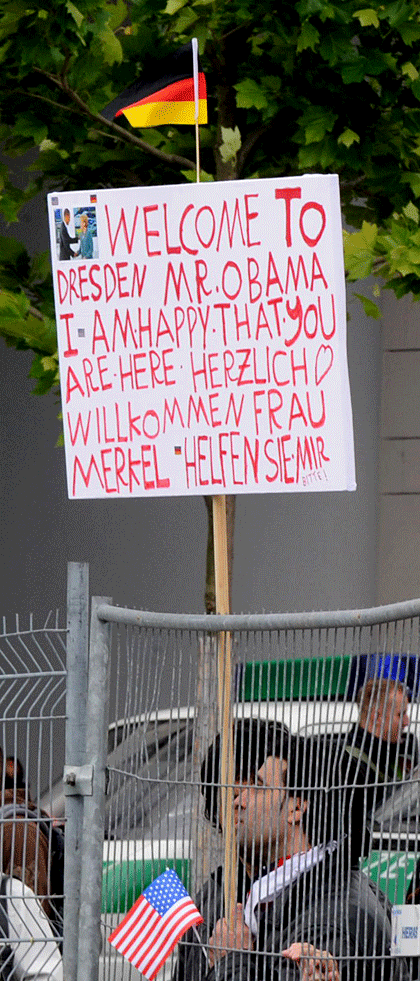 WELCOME TO
DRESDEN MR. OBAMA
I AM·HAPPY·THAT·YOU
ARE·HERE·HERZLICH♡
WILLKOMMEN FRAU
MERKEL HELFEN SIE·MIR
BITTE!
HERAS